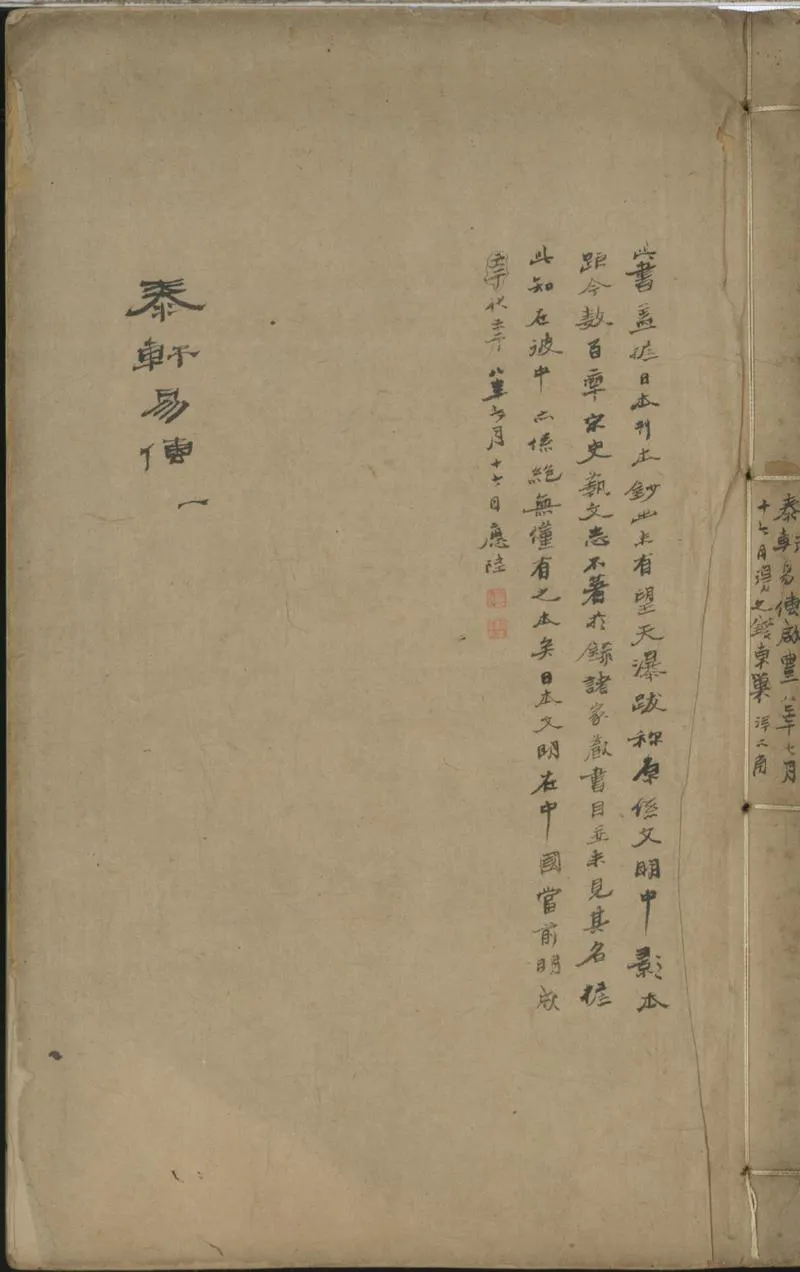 泰軒易傳啟豐八年七月
十七日得之
此書蓋據日本刊本鈔出末有望天瀑跋称原係文明中影本
距今數百禩宋史藝文志不著於錄諸家藏書目並未見其名據
此知在彼中亦係絕無僅有之本矣日本文明在中國當前明成
八年六月十六日應陸
泰軒易傳 一